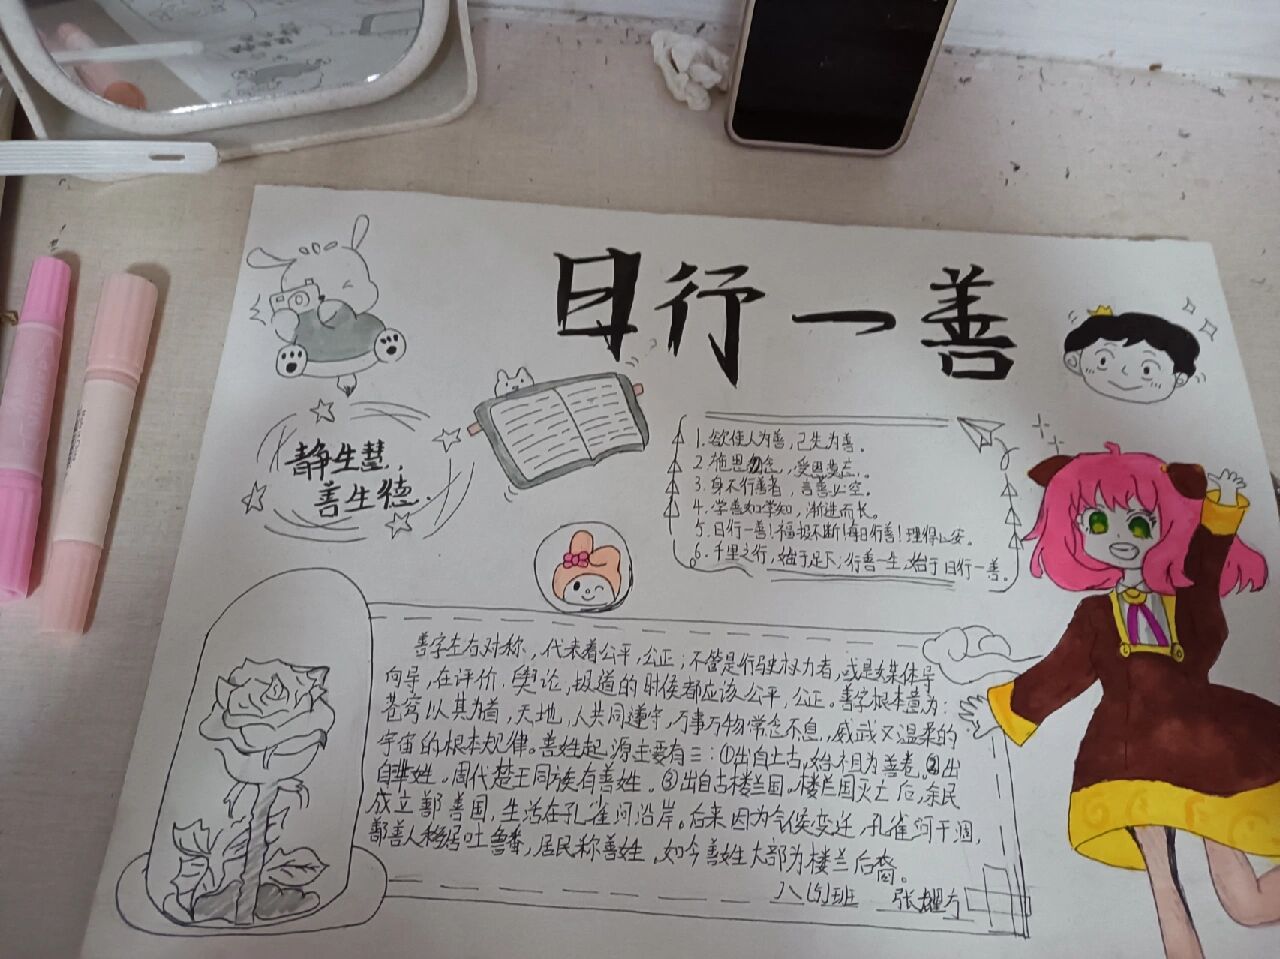 日行一善
静生慧，
善生德。
1. 欲使人为善，己先为善。
2. 施恩勿念，受恩莫忘。
3. 身不行善者，言善必空。
4. 学善如学知，渐进而长。
5. 日行一善！福报不断！每日行善！理得心安。
6. 千里之行，始于足下，行善一生，始于日行一善。
善字左右对称，代表着公平，公正；不管是行驶权力者，或是媒体导
向导，在评价、舆论，报道的时候都应该公平，公正。善字根本意为：
苍穹以其为首，天地，人共同遵守，万事万物常念不息，威武又温柔的
宇宙的根本规律。善姓起源主要有三：①出自上古，始祖为善卷。②出
自芈姓，周代楚王同族有善姓。③出自古楼兰国。楼兰国灭亡后，余民
成立鄯善国，生活在孔雀河沿岸。后来因为气候变迁，孔雀河干涸，
鄯善人移居吐鲁番，居民称善姓。如今善姓大部为楼兰后裔。
班 张